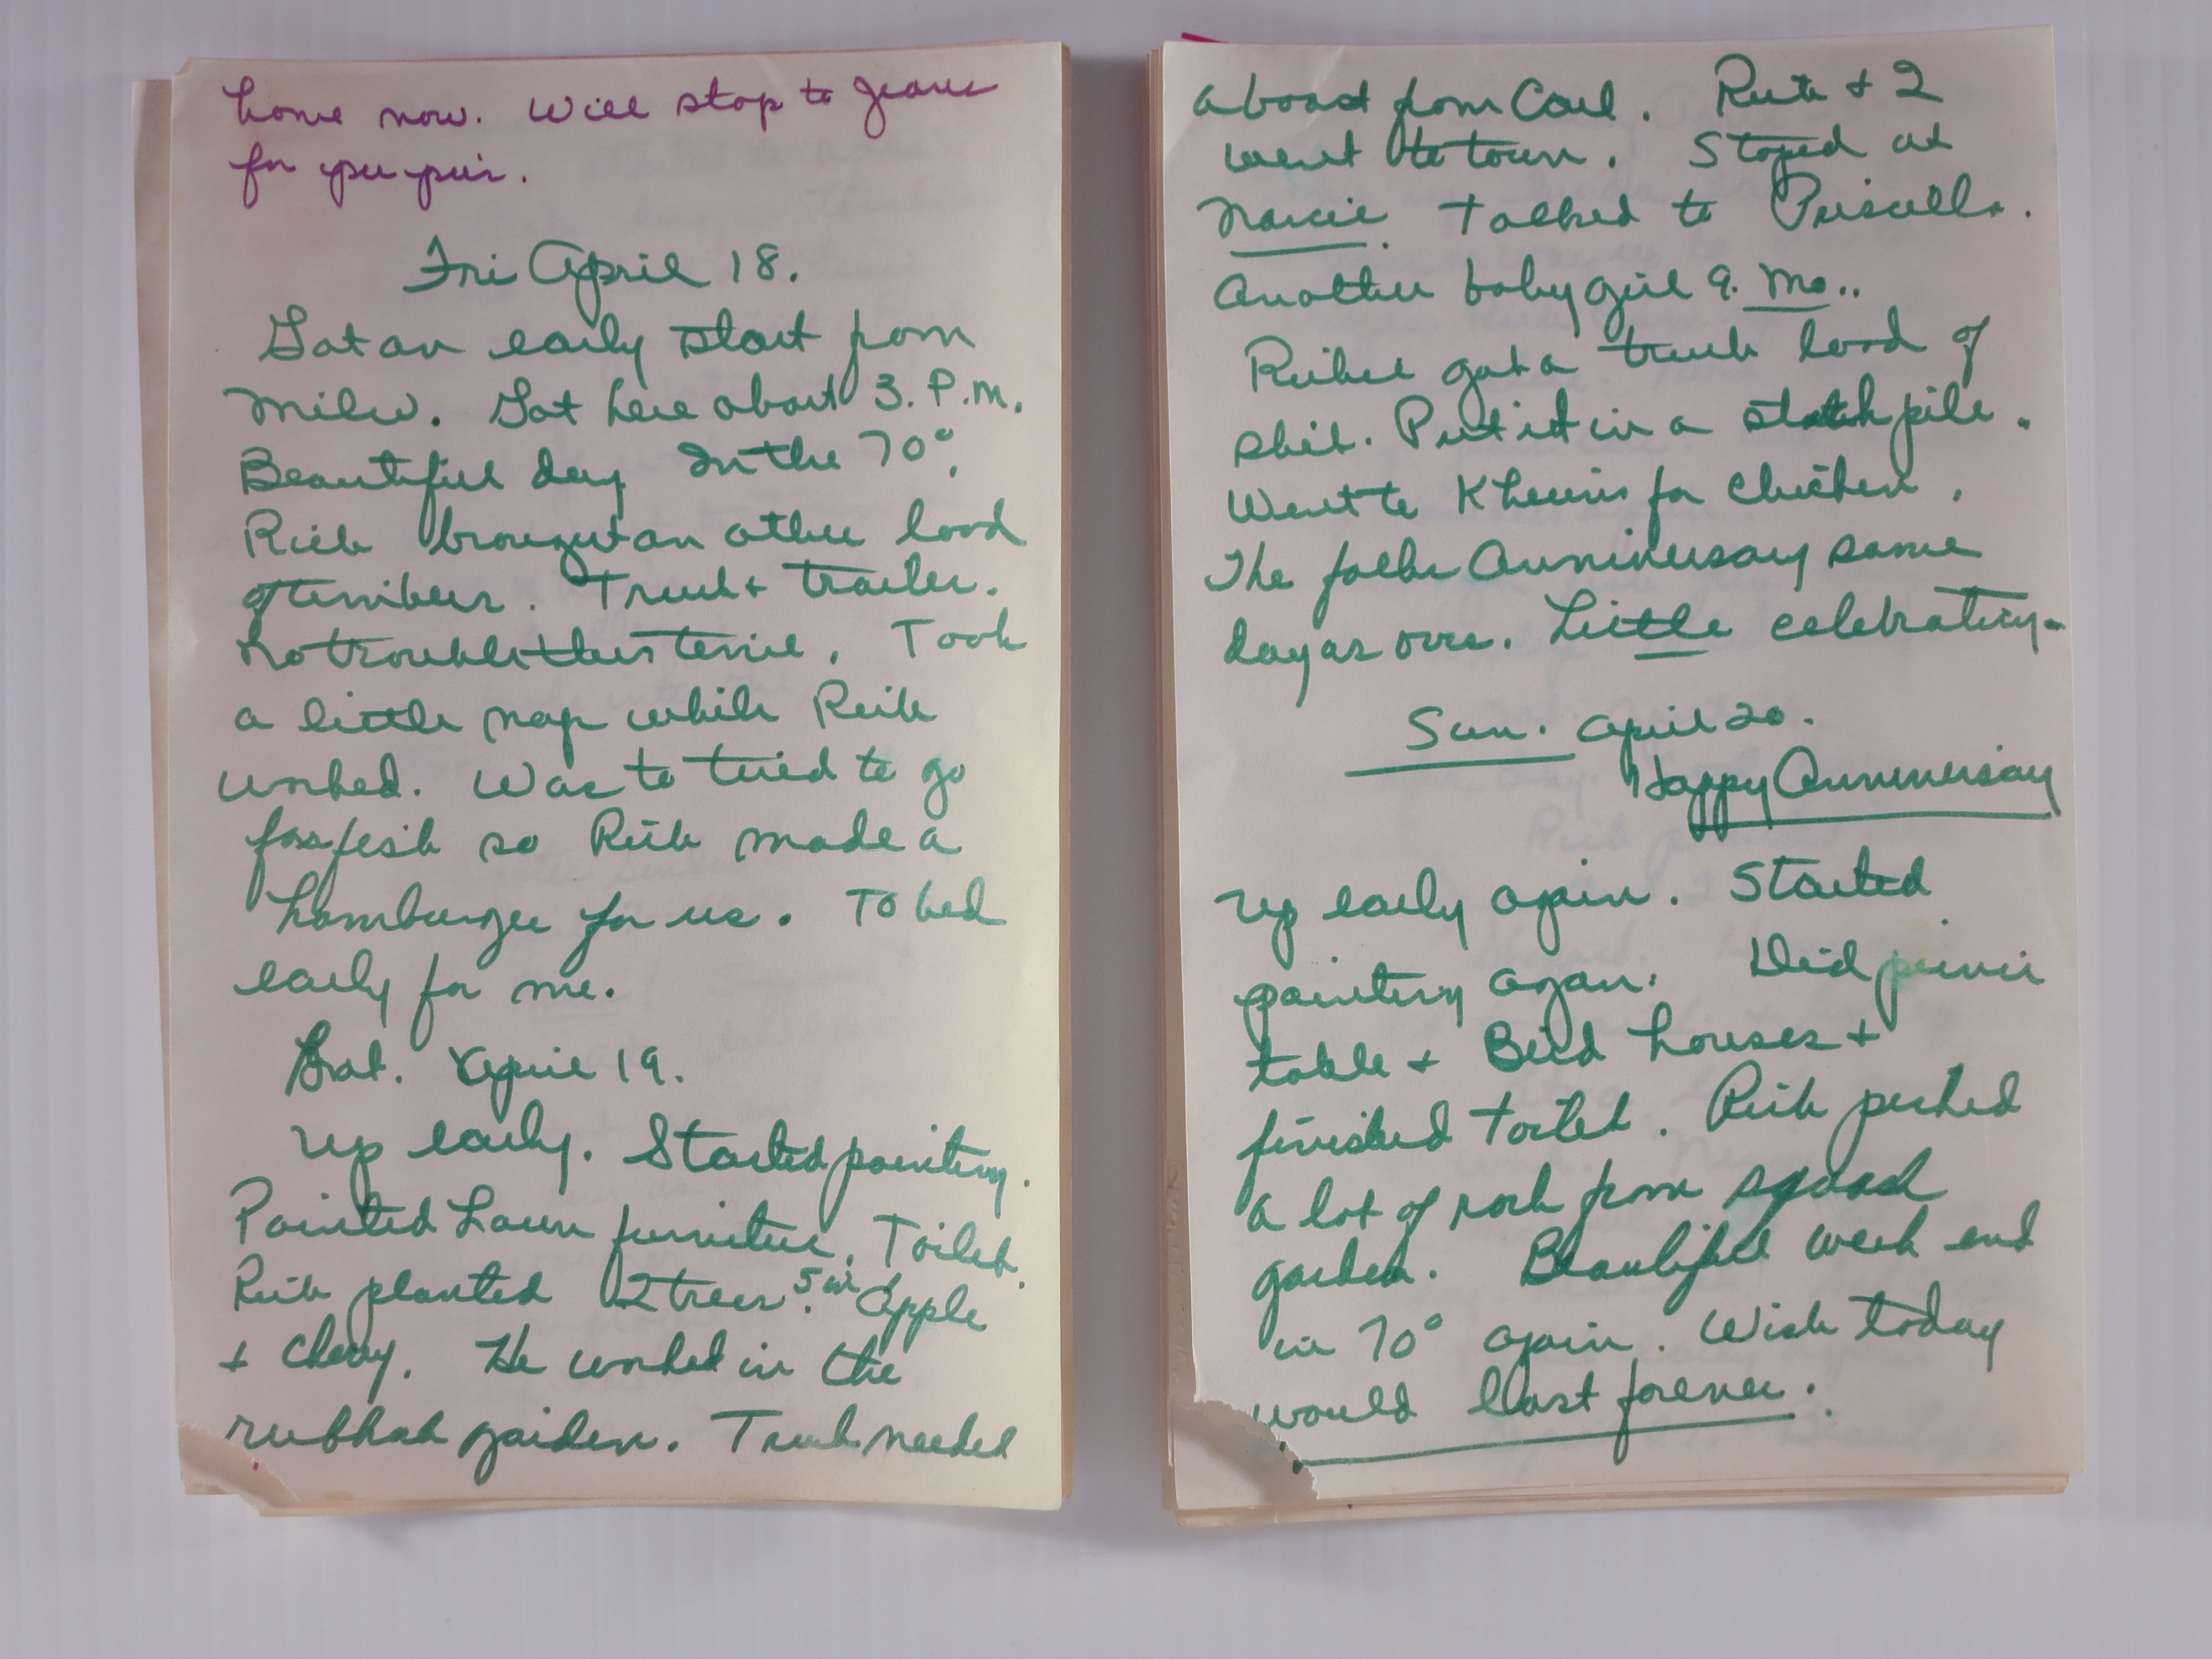 home now. Will stop to
for
Fri April 18.
Got an early start from
Milw. Got here about 3. P.M.
Beautiful day In the 70°.
Rich brought an other load
of timbers. Truck + trailer.
No trouble this time. Took
a little nap while Rich
worked. Was to tired to go
for fish so Rich made a
hamburger for us. To bed
early for me.
Sat. April 19.
Up early. Started painting.
Painted Lawn furniture, Toilet.
Rich planted 2 trees. 5 in 1 Apple
+ Cherry. He worked in the
rubhab garden. Truck needed
a boost from Carl. Rich + I
went to town. Stoped at
Marcie. Talked to Priscilla.
Another baby girl 9. Mo..
Richie got a truck load of
shit. Put it in a pile.
Went to for chicken.
The folks Anniversay same
day as ours. Little celebrating.
Sun. April 20.
Happy Anniversay
Up early again. Started
painting again. Did picnic
table + Bird houses +
finished toilet. Rich picked
a lot of rock from squash
garden. Beautiful week end
in 70° again. Wish today
would last forever.